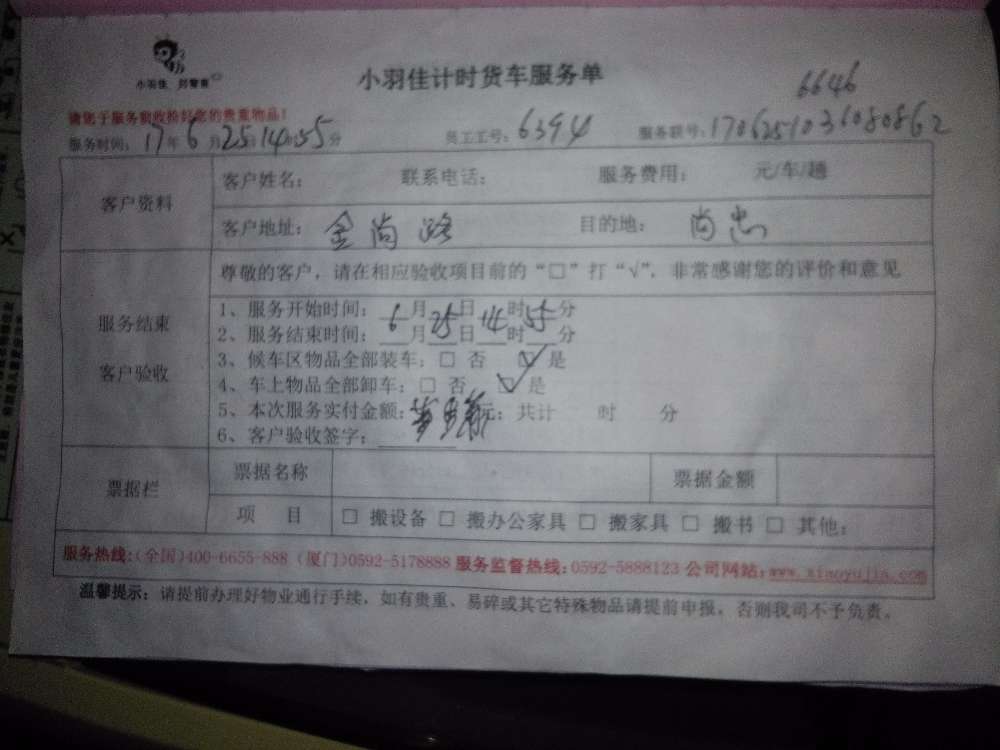 小羽佳 好警察
小羽佳计时货车服务单
6646
请您于服务验收捡好您的贵重物品！
服务时间：17年6月25日14时55分 员工工号：6394 服务联号：1706251036080862
客户资料
客户姓名： 联系电话： 服务费用： 元/车/趟
客户地址：金尚路 目的地：尚忠
服务结束
客户验收
尊敬的客户，请在相应验收项目前的“□”打“√”，非常感谢您的评价和意见
1、服务开始时间：6月25日14时55分
2、服务结束时间：__月__日__时__分
3、候车区物品全部装车：□ 否 ☑ 是
4、车上物品全部卸车：□ 否 ☑ 是
5、本次服务实付金额： 元；共计 时 分
6、客户验收签字：
票据栏
票据名称 票据金额
项 目 □ 搬设备 □ 搬办公家具 □ 搬家具 □ 搬书 □ 其他：
服务热线：(全国)400-6655-888 (厦门)0592-5178888 服务监督热线：0592-5888123 公司网站：www.xiaoyujia.com
温馨提示：请提前办理好物业通行手续，如有贵重、易碎或其它特殊物品请提前申报，否则我司不予负责。